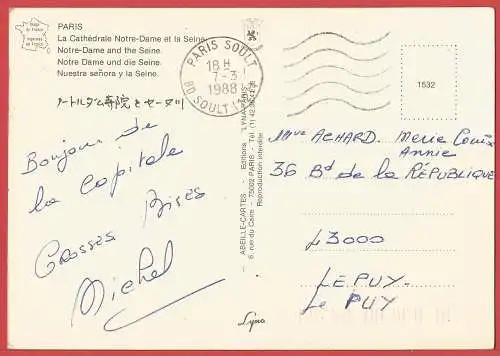 PARIS
La Cathédrale Notre-Dame et la Seine.
Notre-Dame and the Seine.
Notre Dame und die Seine.
Nuestra señora y la Seine.
ノートルダム寺院とセーヌ川
Bonjour de
la Capitale
GROSSES BISES
Michel
PARIS SOULT
18 H
7-3
1988
BD SOULT
ABEILLE-CARTES - Editions "LYNA-PARIS"
8, rue du Caire - 75002 PARIS - Tél. (1)
Reproduction interdite
1532
Mme ACHARD Marie Louise
Annie
36 Bd de la RÉPUBLIQUE
43000
LE PUY
Le PUY
Lyna